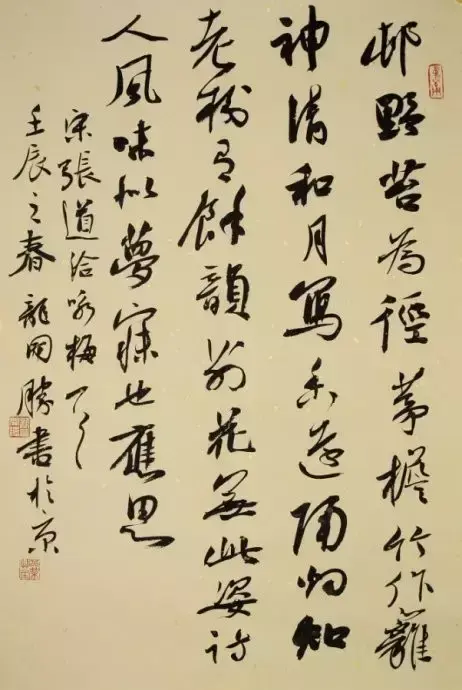 邨野苔為徑茅檐竹作籬
神清和月寫香遠隔烟知
老樹有餘韻別花無此姿詩
人風味似夢寐也應思
宋張道洽咏梅
壬辰之春龍開勝書於京